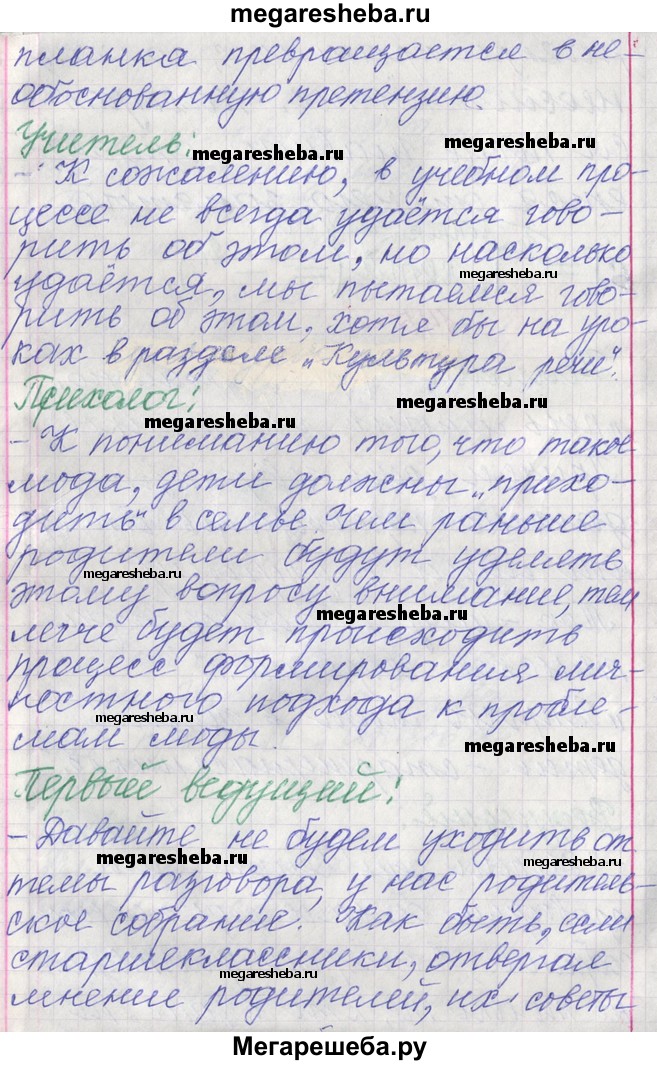 megaresheba.ru
планка превращается в не-
обоснованную претензию.
Учитель:
megaresheba.ru
megaresheba.ru
- К сожалению, в учебном про-
цессе не всегда удаётся гово-
рить об этом, но насколько
megaresheba.ru
удаётся, мы пытаемся гово-
рить об этом, хотя бы на уро-
ках в разделе „Культура речи".
Психолог:
megaresheba.ru
megaresheba.ru
- К пониманию того, что такое
мода, дети должны „прихо-
дить" в семье. Чем раньше
родители будут уделять
megaresheba.ru
этому вопросу внимание, тем
megaresheba.ru
легче будет происходить
процесс формирования лич-
ностного подхода к пробле-
megaresheba.ru
мам моды.
megaresheba.ru
Первый ведущий:
- Давайте не будем уходить от
megaresheba.ru
megaresheba.ru
темы разговора, у нас родитель-
ское собрание. Как быть, если
старшеклассники, отвергая
megaresheba.ru
мнение родителей, их советы
Мегарешеба.ру